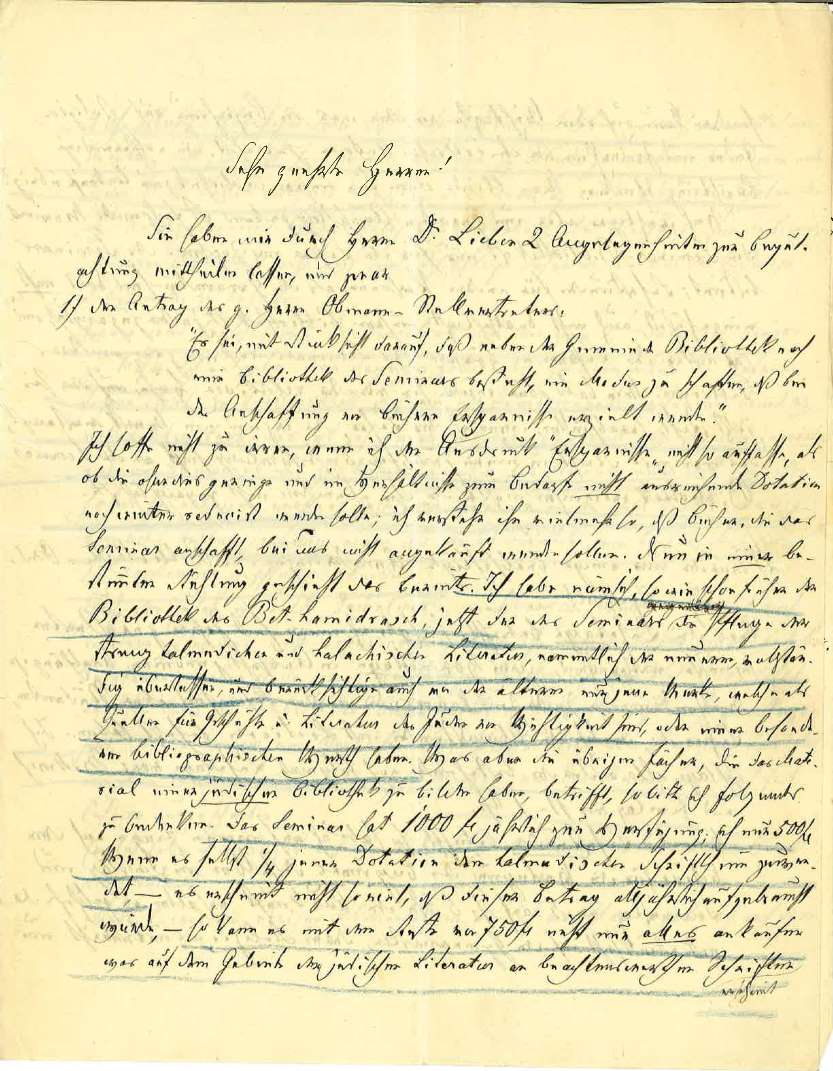 Sehr geehrte Herren!
Sie haben mir durch Herrn Dr. Lieben 2 Angelegenheiten zur begut-
achtung mittheilen lassen, und zwar
1) den Antrag des g. Herrn Obmann-Stellvertreters:
"Es sei, mit Rücksicht darauf, daß neben der Gemeinde Bibliothek noch
eine Bibliothek des Seminars besteht, ein Modus zu schaffen, daß bei
der Anschaffung von Büchern Ersparnisse erzielt werden."
Ich hoffe nicht zu irren, wenn ich den Ausdruck "Ersparnisse" nicht so auffasse, als
ob die ohnedies geringe und im Verhältnisse zum Bedarfe nicht ausreichende Dotation
noch weiter reducirt werden sollte; ich verstehe ihn vielmehr so, daß Bücher, die das
Seminar anschafft, bei uns nicht angekauft werden sollen. Nun in einer be-
stimmten Richtung geschieht das bereits. Ich habe nämlich, so wie schon früher der
Bibliothek des Bet-hamidrasch, jetzt der des Seminars die Pflege der
streng talmudischen und halachischen Literatur, namentlich der neueren, vollstän-
dig überlassen, und berücksichtige auch von der älteren nur jene Werke, welche als
Quellen für Geschichte u. Literatur der Juden von Wichtigkeit sind, oder einen besonde-
ren bibliographischen Werth haben. Was aber die übrigen Fächer, die das Mate-
rial einer jüdischen Bibliothek zu bilden haben, betrifft, so bitte ich folgendes
zu bedenken. Das Seminar hat 1000 fl jährlich zur Verfügung, ich nur 500 fl
Wenn es selbst 1/4 jener Dotation den talmudischen Schriftthum zuwen-
det, — es erscheint nicht so viel, daß dieser Betrag alljährlich aufgebraucht
würde, — so kann es mit dem Reste von 750 fl nicht nur alles ankaufen
was auf dem Gebiete der jüdischen Literatur an beachtenswerthen Schriften
erscheint